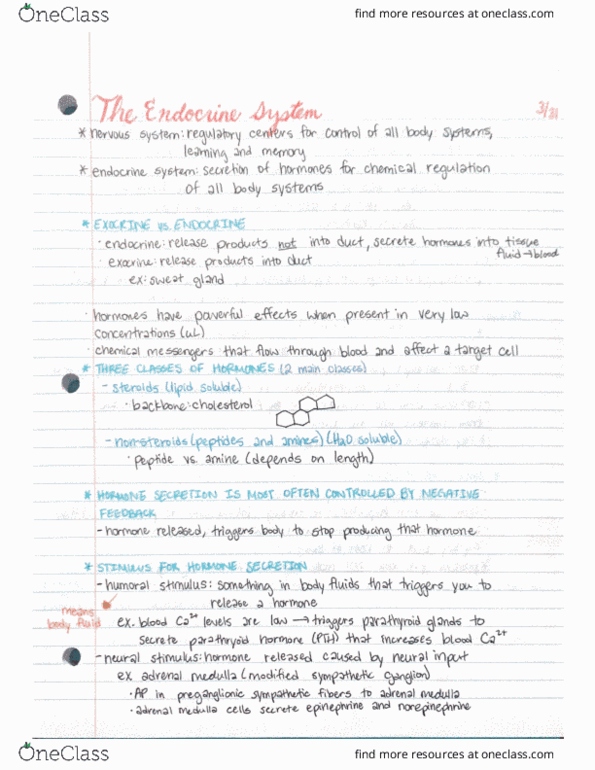 OneClass
find more resources at oneclass.com
The Endocrine System
3/31
* nervous system: regulatory centers for control of all body systems,
learning and memory
* endocrine system: secretion of hormones for chemical regulation
of all body systems
* EXOCRINE vs. ENDOCRINE
· endocrine: release products not into duct, secrete hormones into tissue
fluid → blood
· exocrine: release products into duct
ex: sweat gland
· hormones have powerful effects when present in very low
concentrations (uL)
· chemical messengers that flow through blood and affect a target cell
* THREE CLASSES OF HORMONES (2 main classes)
- steroids (lipid soluble)
· backbone: cholesterol
- non-steroids (peptides and amines) (H2O soluble)
· peptide vs. amine (depends on length)
* HORMONE SECRETION IS MOST OFTEN CONTROLLED BY NEGATIVE
FEEDBACK
- hormone released, triggers body to stop producing that hormone
* STIMULUS FOR HORMONE SECRETION
- humoral stimulus: something in body fluids that triggers you to
release a hormone
means
body fluid
ex. blood Ca2+ levels are low → triggers parathyroid glands to
secrete parathryoid hormone (PTH) that increases blood Ca2+
- neural stimulus: hormone released caused by neural input
ex adrenal medulla (modified sympathetic ganglion)
· AP in preganglionic sympathetic fibers to adrenal medulla
· adrenal medulla cells secrete epinephrine and norepinephrine
OneClass
find more resources at oneclass.com